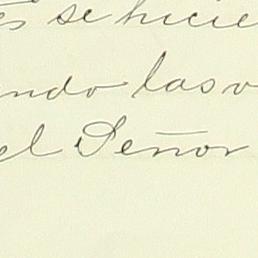 es se hicie
ndo las v
el Señor